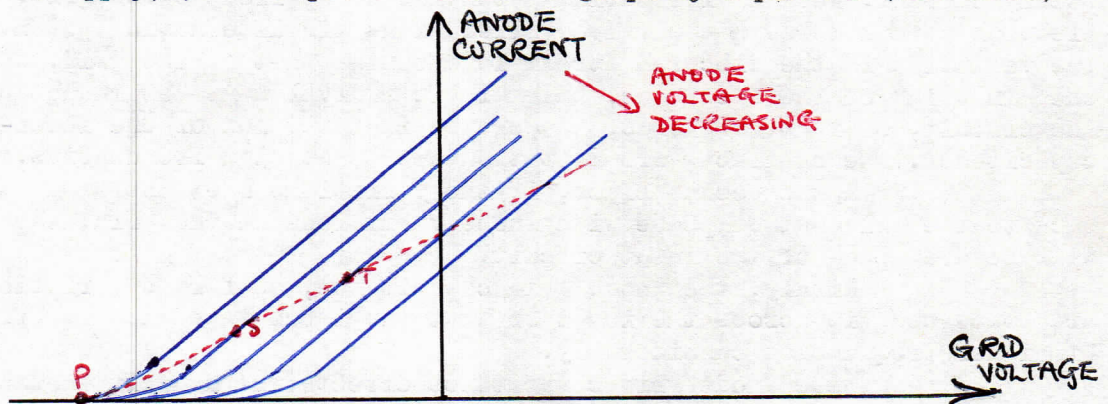 ANODE
CURRENT
ANODE
VOLTAGE
DECREASING
T
S
P
GRID
VOLTAGE